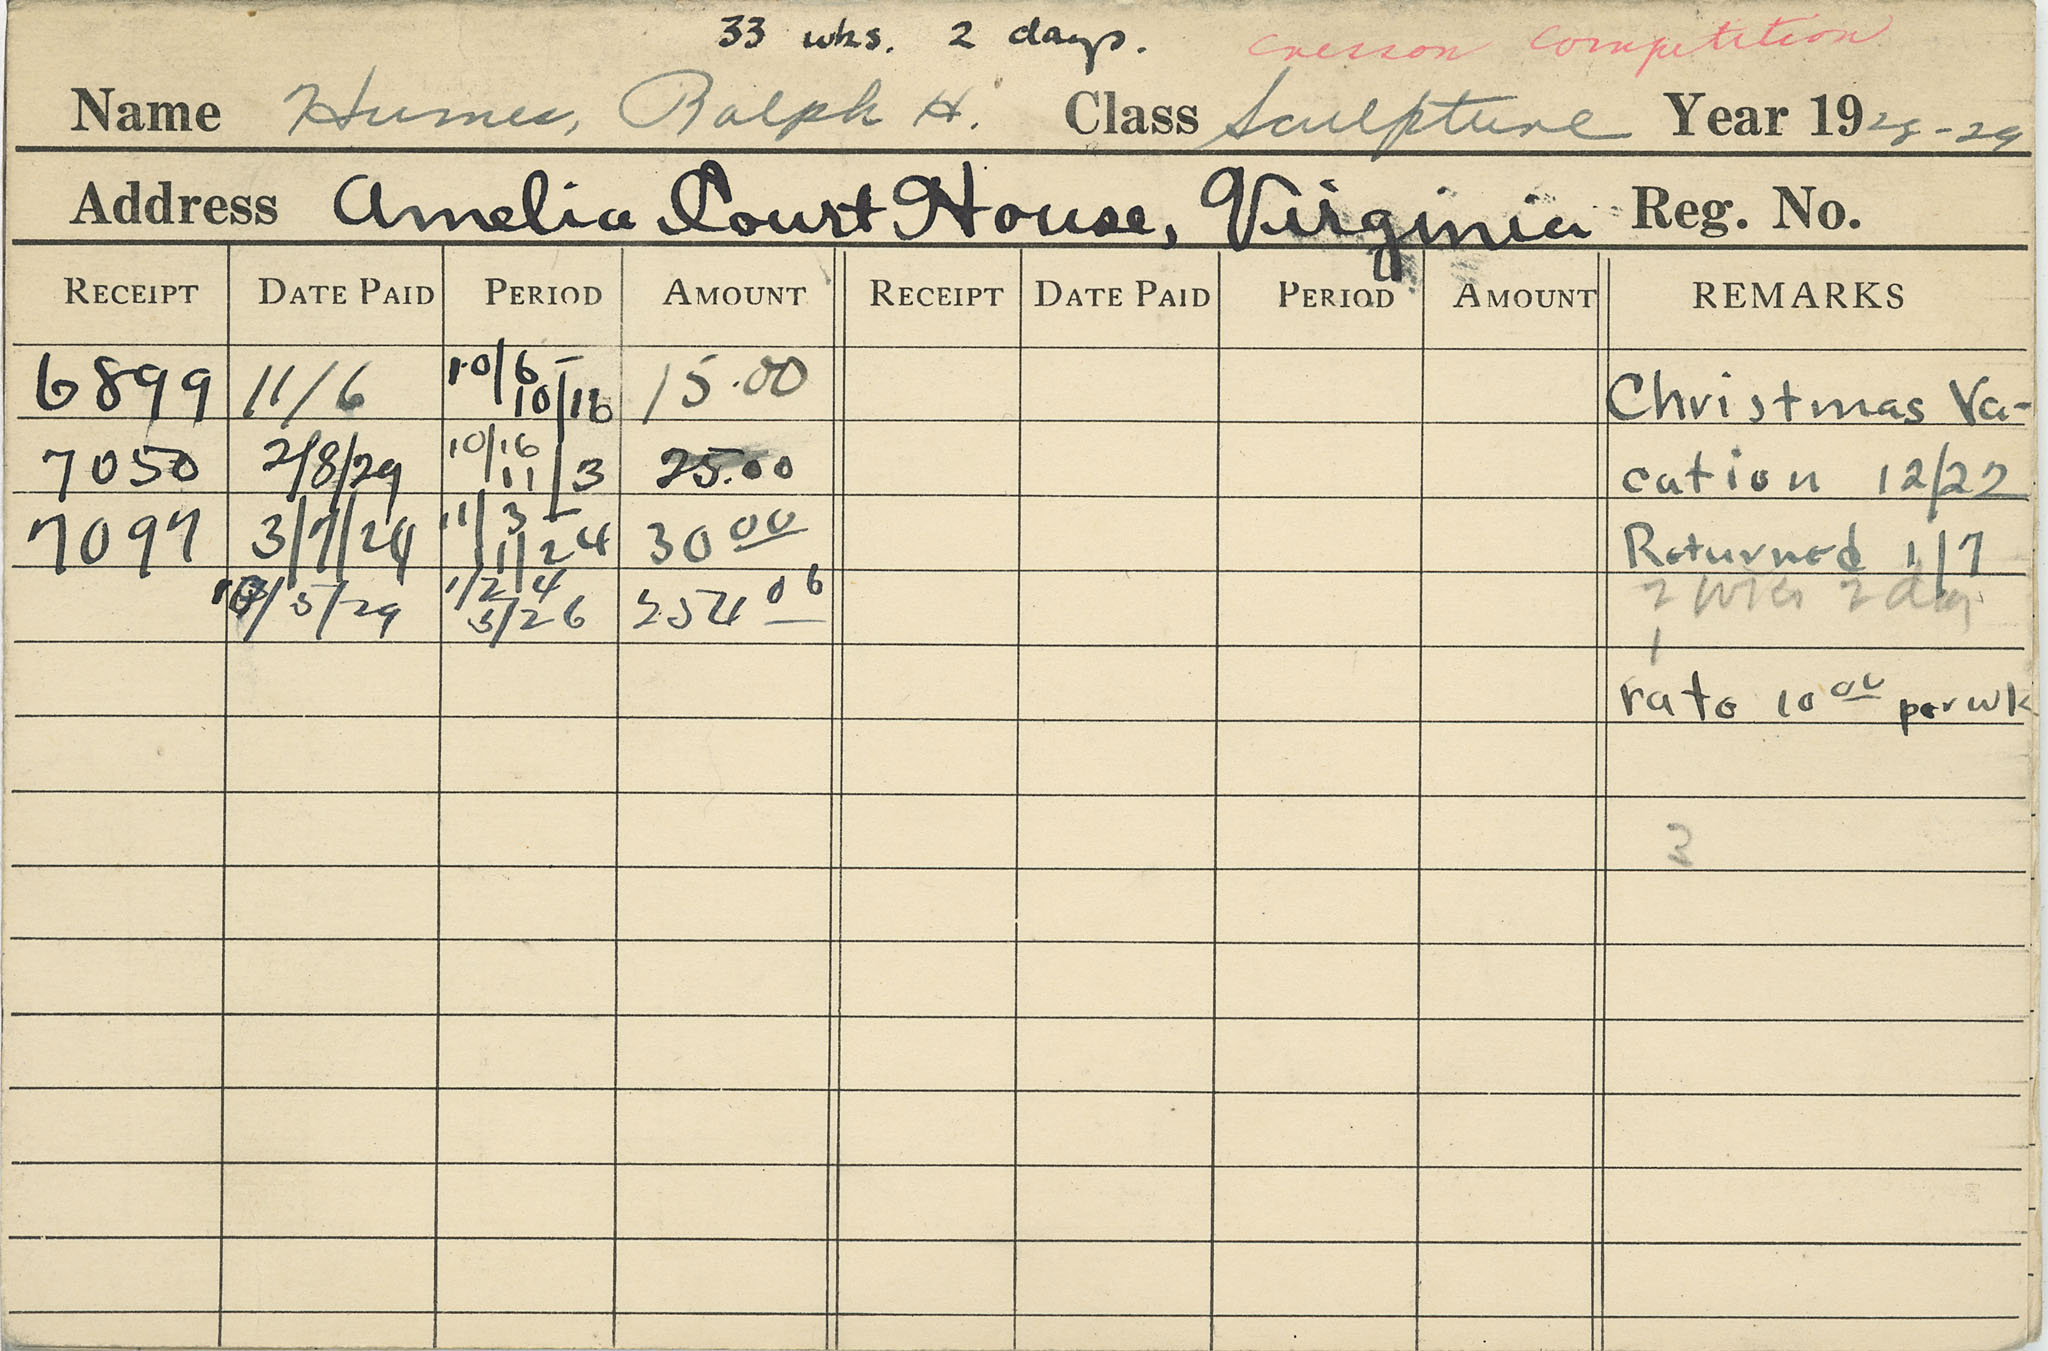 33 wks. 2 days. Cresson Competition
Name Humes, Ralph H. Class Sculpture Year 1928-29
Address Amelia Court House, Virginia Reg. No.
RECEIPT DATE PAID PERIOD AMOUNT RECEIPT DATE PAID PERIOD AMOUNT REMARKS
6899 11/6 10/6 - 10/16 15.00 Christmas Va-
7050 2/8/29 10/16 11/3 25.00 cation 12/22
7097 3/7/29 11/3 - 1/24 30 00 Returned 1/7
/5/29 1/24 5/26 254 06 2 wks 2 day
1
rate 10 00 per wk